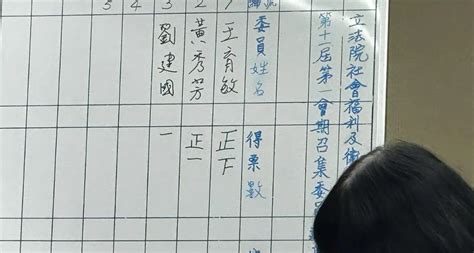 立法院社會福利及衛
第十一屆第一會期召集委員
委員姓名 得票數
王育敏 正下
2 黃秀芳 正一
3 劉建國 一
4
5